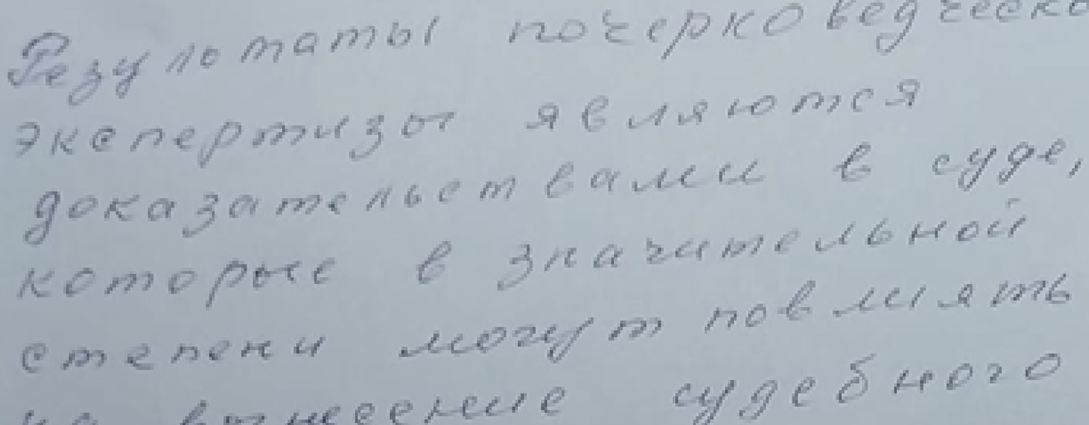 Результаты почерковедческо
экспертизы являются
доказательствами в суде,
которые в значительной
степени могут повлиять
на вынесение судебного